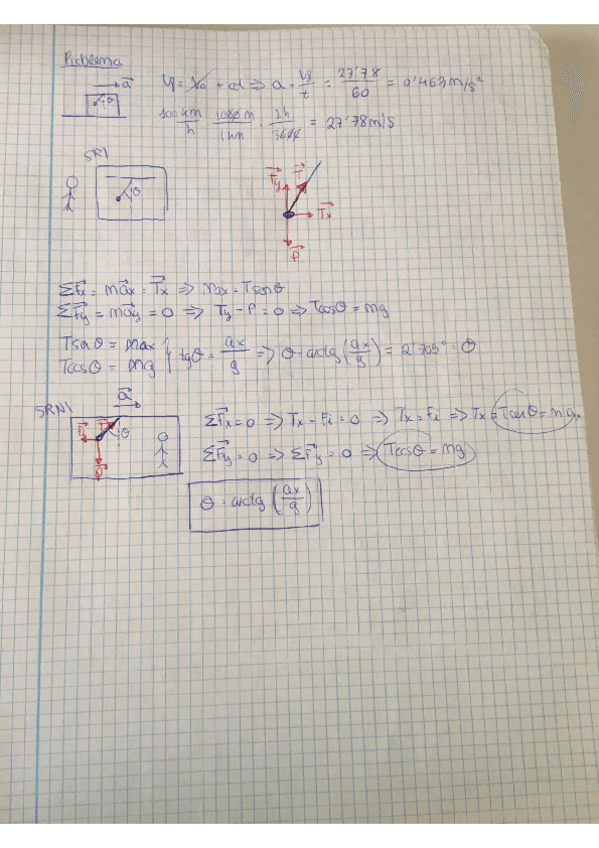 Problema
a⃗
θ
Vf = V₀ + at ⇒ a = Vf/t = 27'78/60 = 0'463 m/s²
100 km/h · 1000 m/1 km · 1h/3600 = 27'78 m/s
SRI
θ
F⃗y T⃗
T⃗x
P⃗
ΣF⃗x = ma⃗x = T⃗x ⇒ max = Tsenθ
ΣF⃗y = ma⃗y = 0 ⇒ Ty - P = 0 ⇒ Tcosθ = mg
Tsenθ = max
Tcosθ = mg } tgθ = ax/g ⇒ θ = arctg(ax/g) = 2'705° = θ
SRNI
a⃗
F⃗i T⃗ θ
P⃗
ΣF⃗x = 0 ⇒ Tx - Fi = 0 ⇒ Tx = Fi ⇒ Tx = Tsenθ = m ax
ΣF⃗y = 0 ⇒ ΣF⃗y = 0 ⇒ Tcosθ = mg
θ = arctg (ax/g)